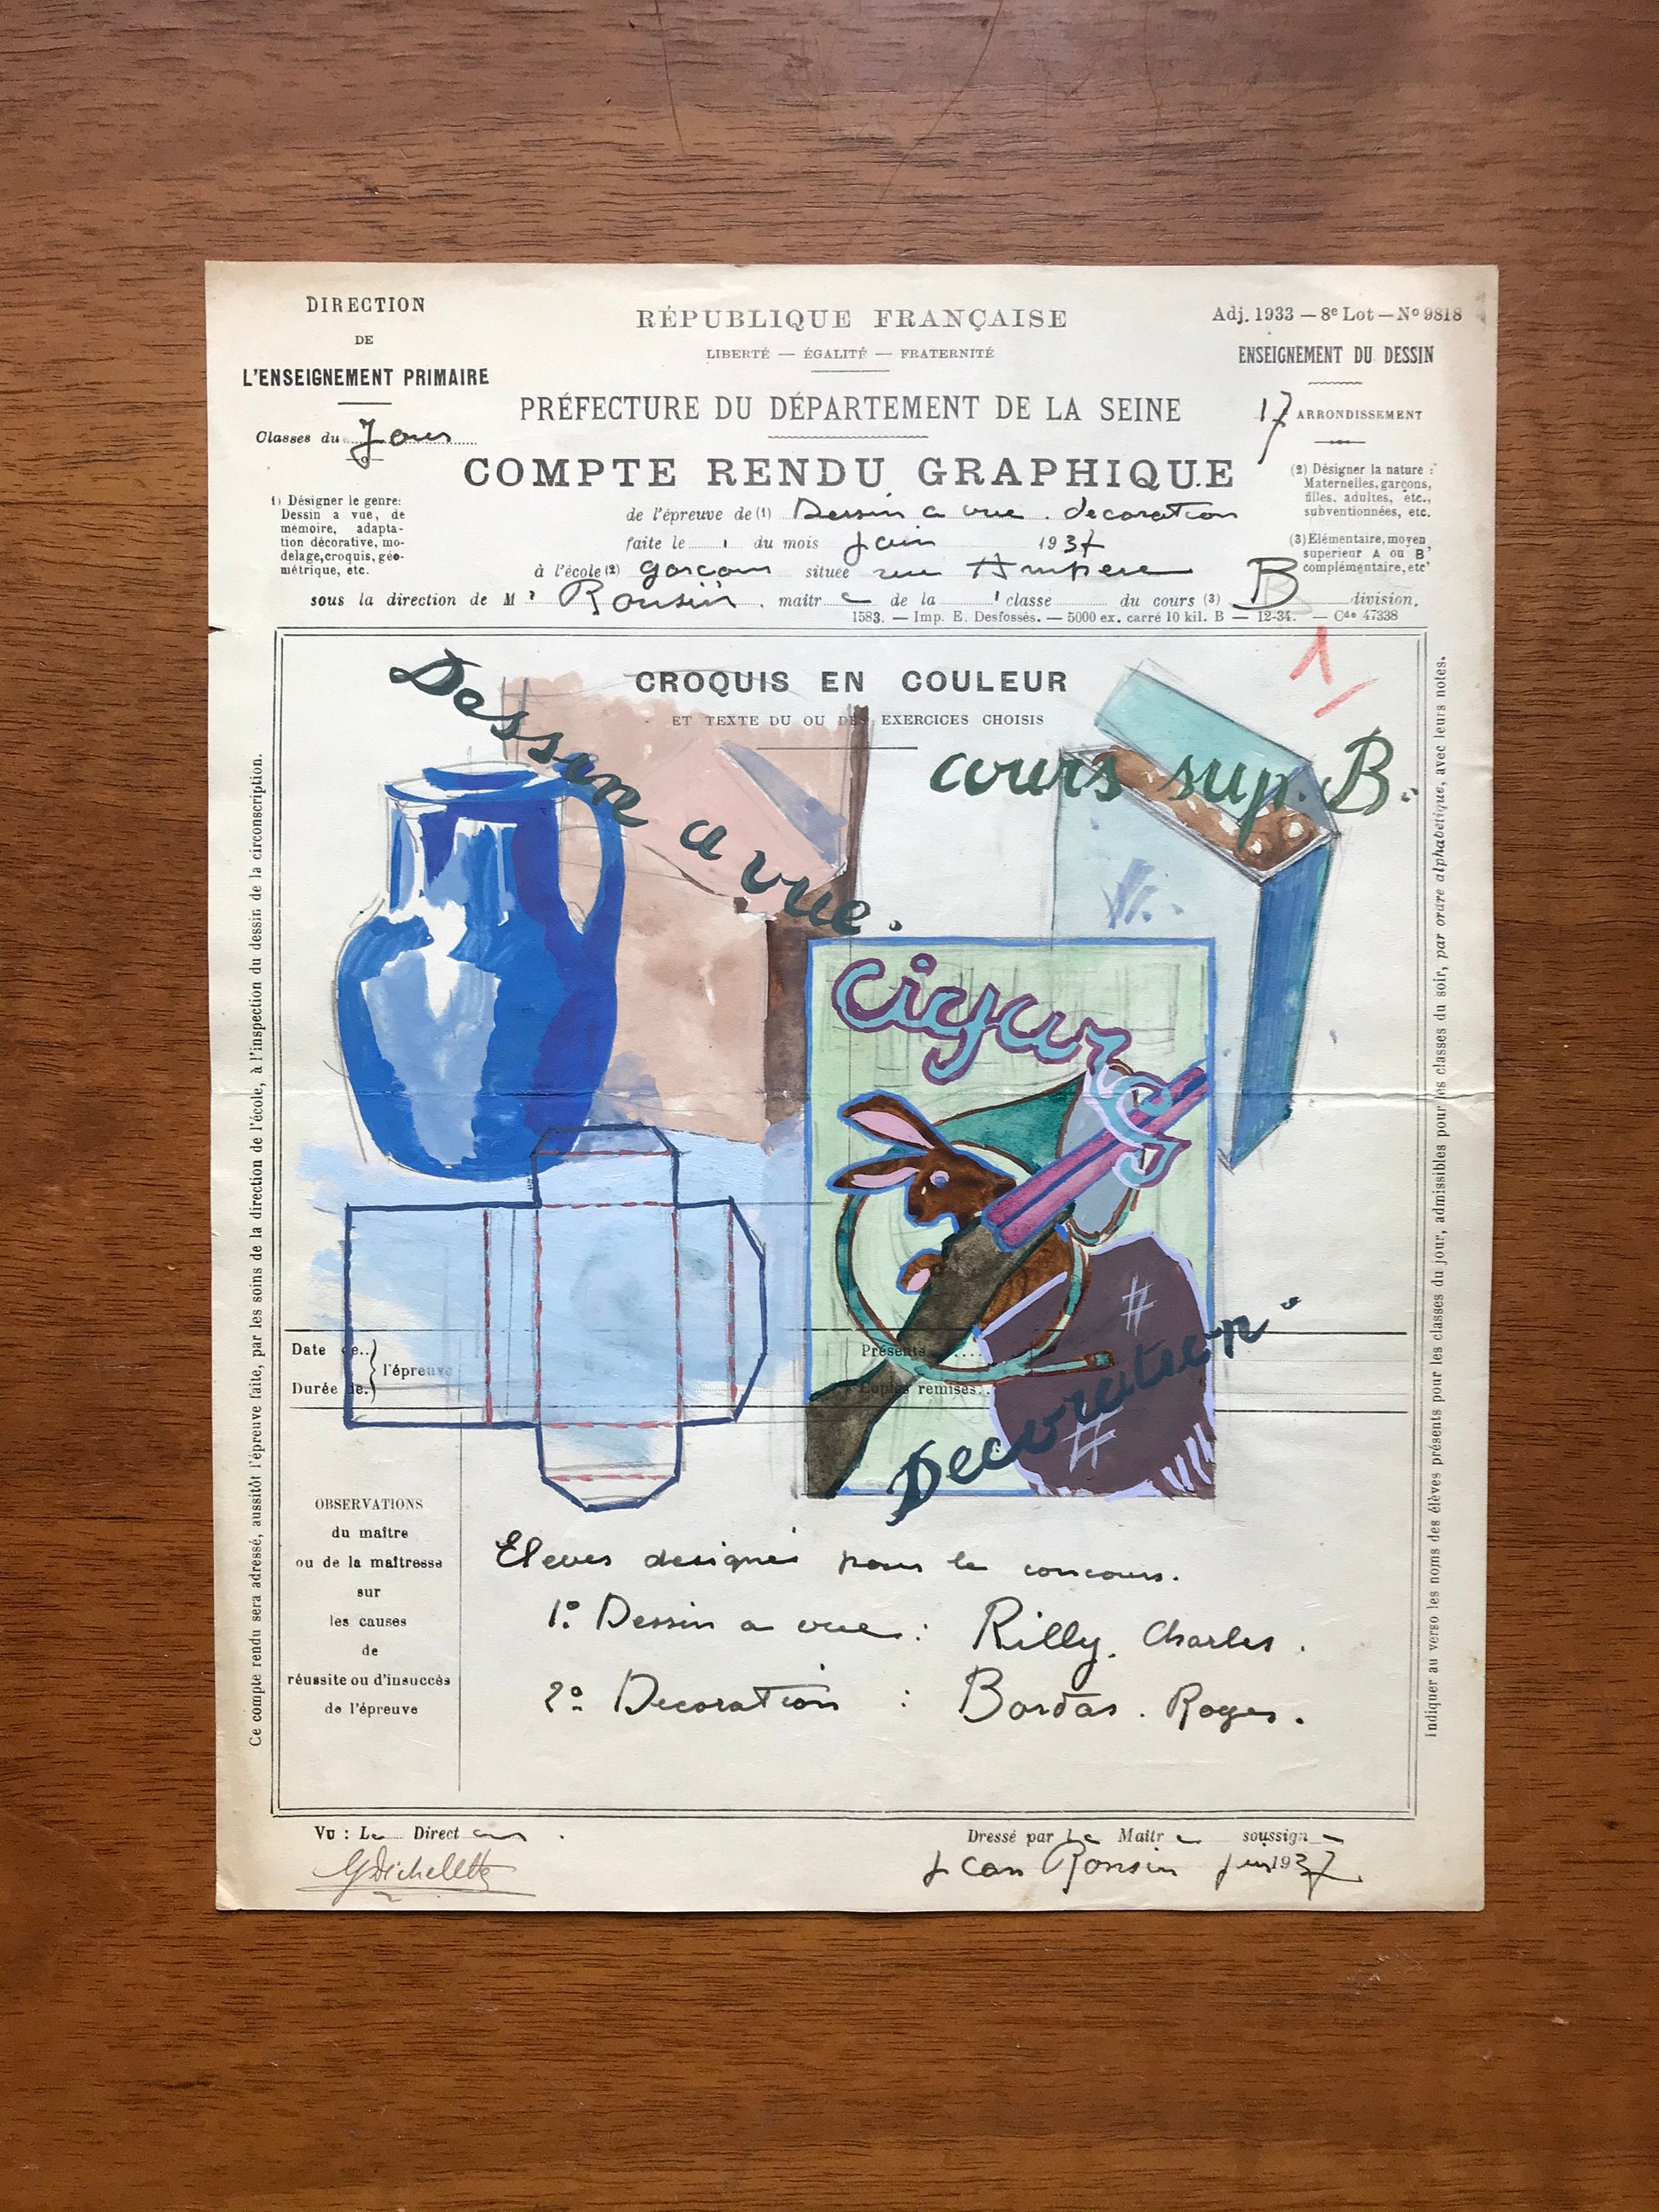 DIRECTION
DE
L'ENSEIGNEMENT PRIMAIRE
Classes du Jour
1) Désigner le genre:
Dessin à vue, de
mémoire, adapta-
tion décorative, mo-
delage, croquis, géo-
métrique, etc.
RÉPUBLIQUE FRANÇAISE
LIBERTÉ — ÉGALITÉ — FRATERNITÉ
PRÉFECTURE DU DÉPARTEMENT DE LA SEINE
COMPTE RENDU GRAPHIQUE
Adj. 1933 — 8e Lot — No 9818
ENSEIGNEMENT DU DESSIN
17 ARRONDISSEMENT
(2) Désigner la nature:
Maternelles, garçons,
filles, adultes, etc.,
subventionnées, etc.
(3) Elémentaire, moyen
supérieur A ou B
complémentaire, etc
de l'épreuve de (1) Dessin a vue. decoration
faite le du mois Juin 1937
à l'école (2) garcons située rue Ampere
sous la direction de Mr Ronsin. maître de la 1 classe du cours (3) B division.
1583. — Imp. E. Desfossés. — 5000 ex. carré 10 kil. B — 12-34. — Cde 47338
1
CROQUIS EN COULEUR
ET TEXTE DU OU DES EXERCICES CHOISIS
Dessin a vue.
cours sup. B.
cigars
Decoration.
Date de
Durée de
l'épreuve
Présents
Copies remises
OBSERVATIONS
du maître
ou de la maîtresse
sur
les causes
de
réussite ou d'insuccès
de l'épreuve
Eleves designés pour le concours.
1º Dessin a vue : Rilly. Charles.
2º Decoration : Bordas. Roger.
Vu : Le Directeur
Dressé par le Maitre soussigné
Jean Ronsin Juin 1937
Ce compte rendu sera adressé, aussitôt l'épreuve faite, par les soins de la direction de l'école, à l'inspection du dessin de la circonscription.
Indiquer au verso les noms des élèves présents pour les classes du jour, admissibles pour les classes du soir, par ordre alphabétique, avec leurs notes.